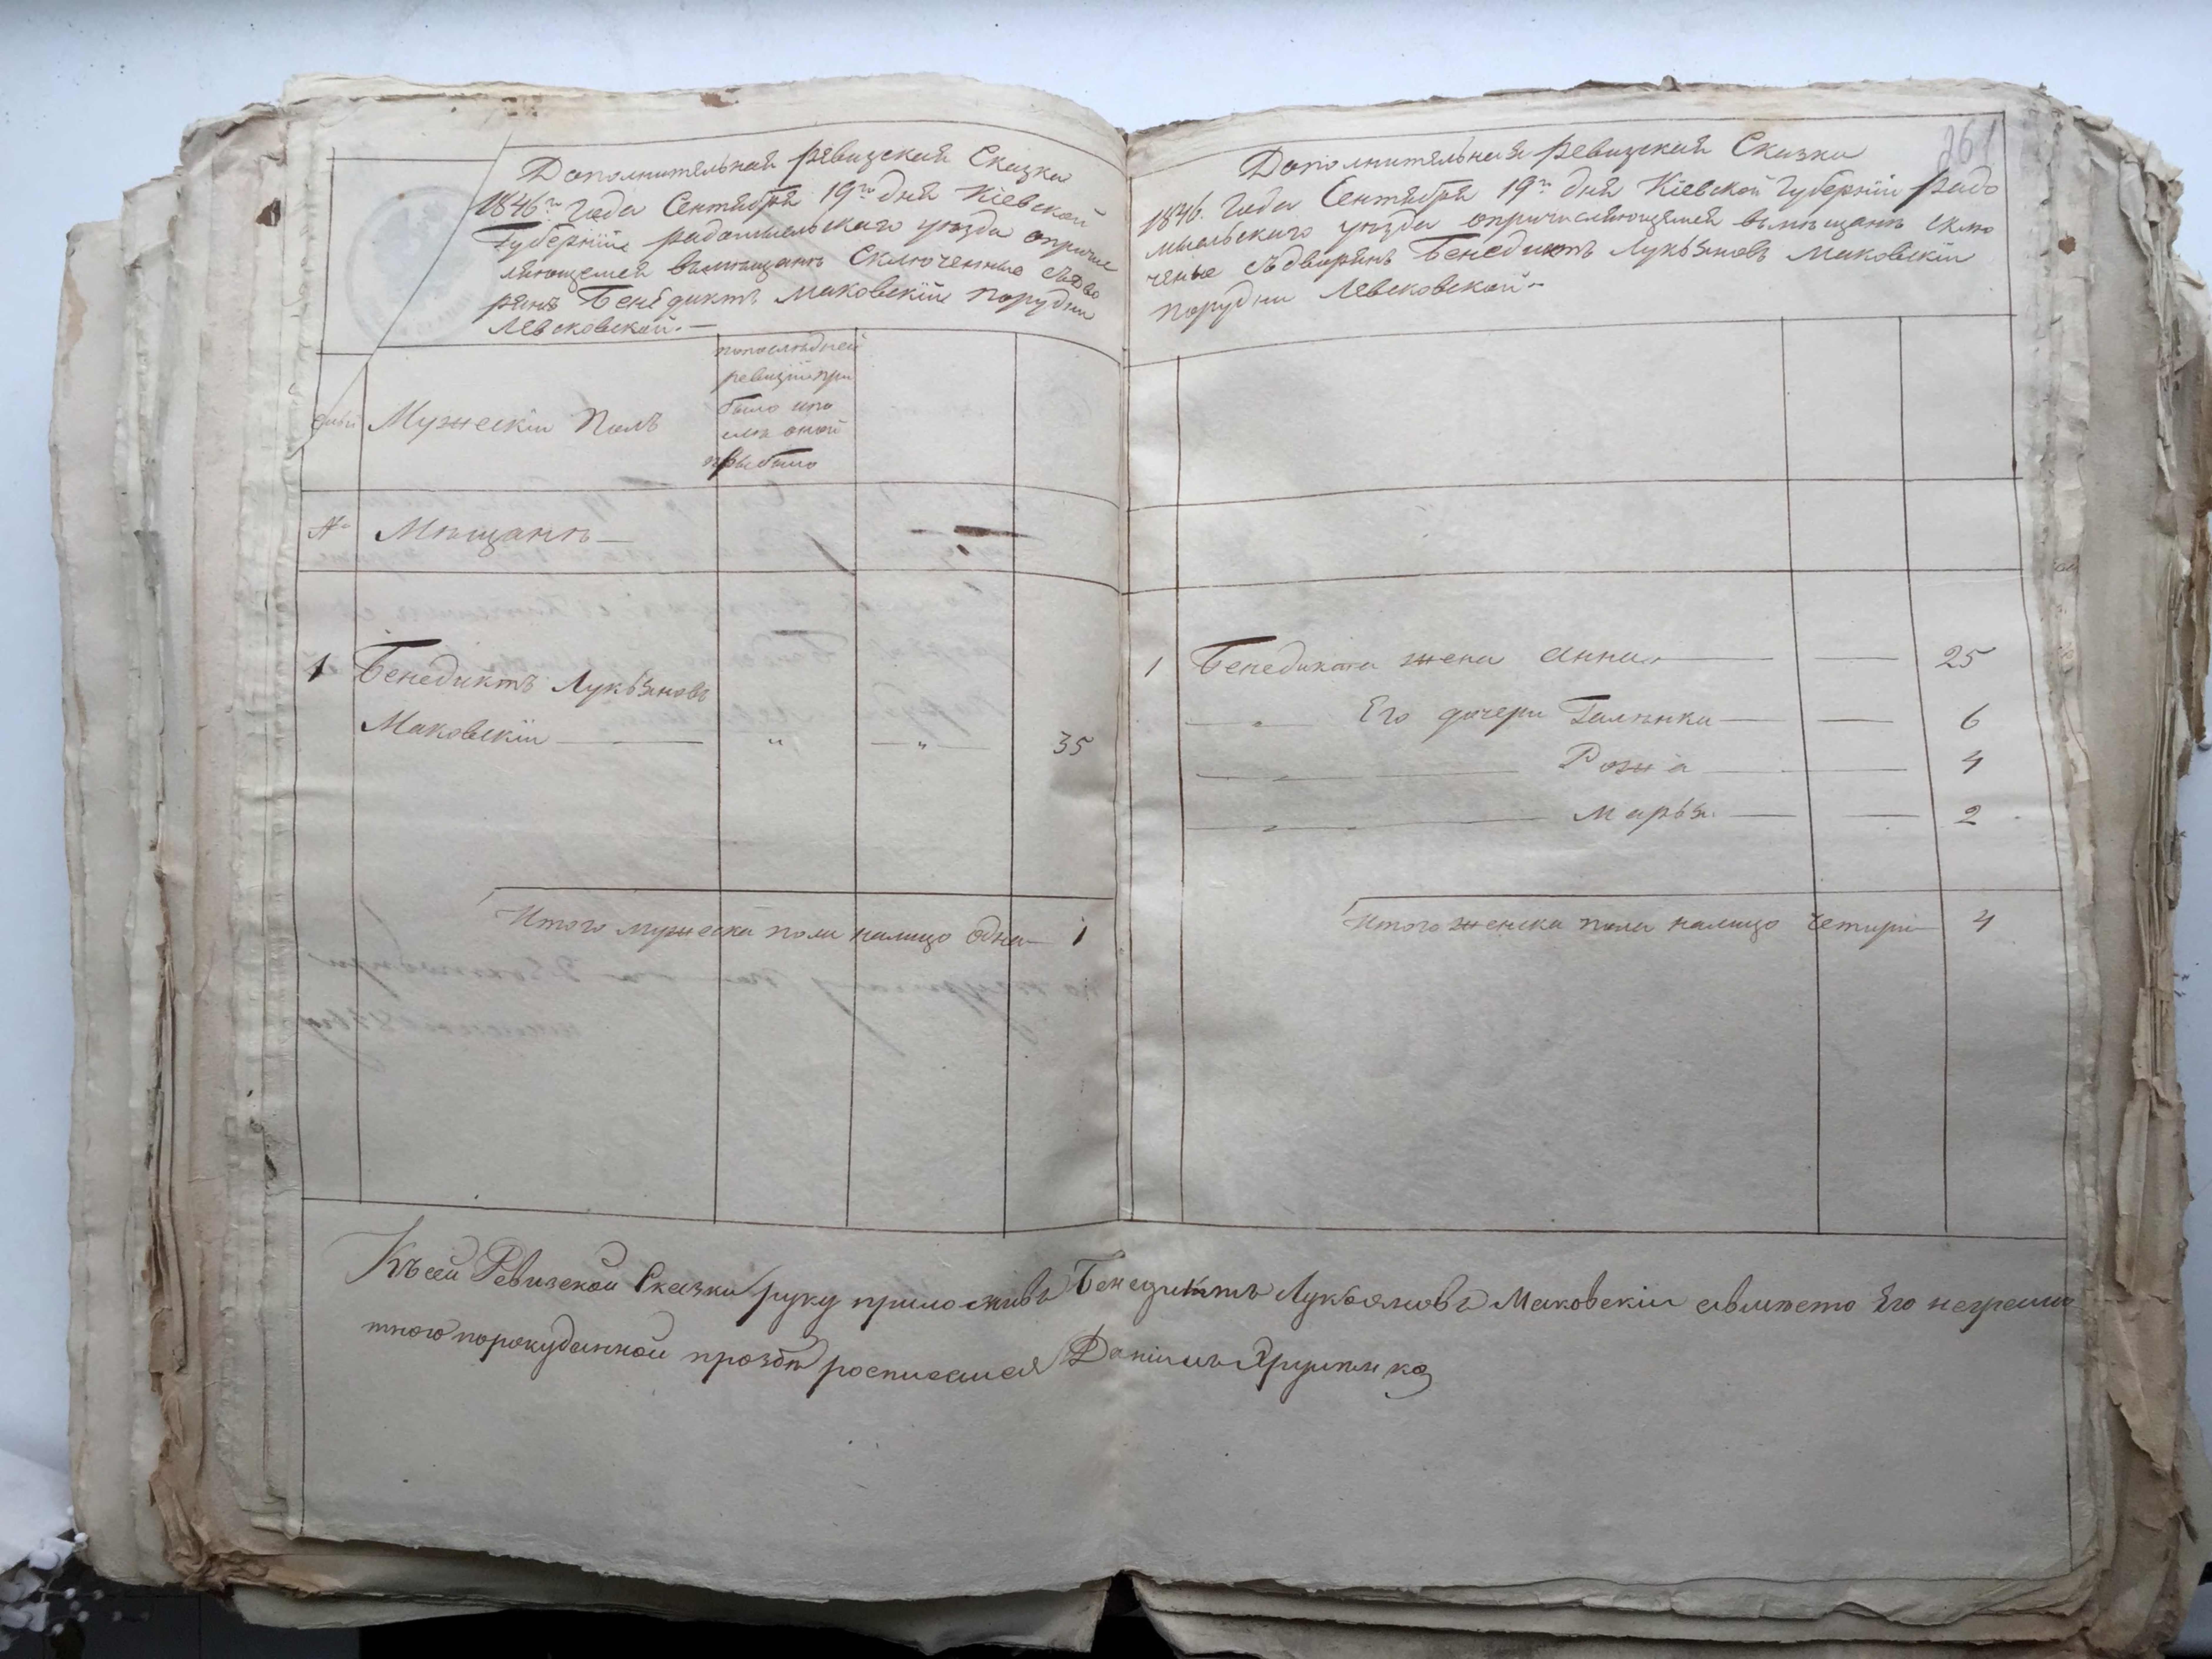 Дополнительная ревизская Сказка
1846го Года Сентября 19го дня Кіевской
Губерніи радомысльскаго уезда опричис
ляющемся вымещане Сключенные съдво
рянъ Бенедиктъ Маковскій порудни
Левковской.—
Мужескій Полъ
попоследней
ревизіи при
было ипо
сле оной
прыбыло
№ Мещане—
1 Бенедиктъ Лукьяновъ
Маковскій — „ — „ — 35
Итого мужеска пола налицо одна— 1
261
Дополнительная ревизская Сказка
1846. Года Сентября 19го дня Кіевской Губерніи радо
мысльскаго уезда опричисляющемся вымещане Склю
ченые съдворянъ Бенедиктъ Лукьяновъ Маковскій
порудни Левковской—
1 Бенедикта жена Анна — — 25
Его дочери Галенка — — 6
Розіа — — 4
Марья. — — 2
Итого женска пола налицо четири— 4
Къ сей Ревизской Сказки руку приложивъ Бенедиктъ Лукьяновъ Маковскій авместо Его неграмо
тного порокуданной прозбе росписался Даніилъ